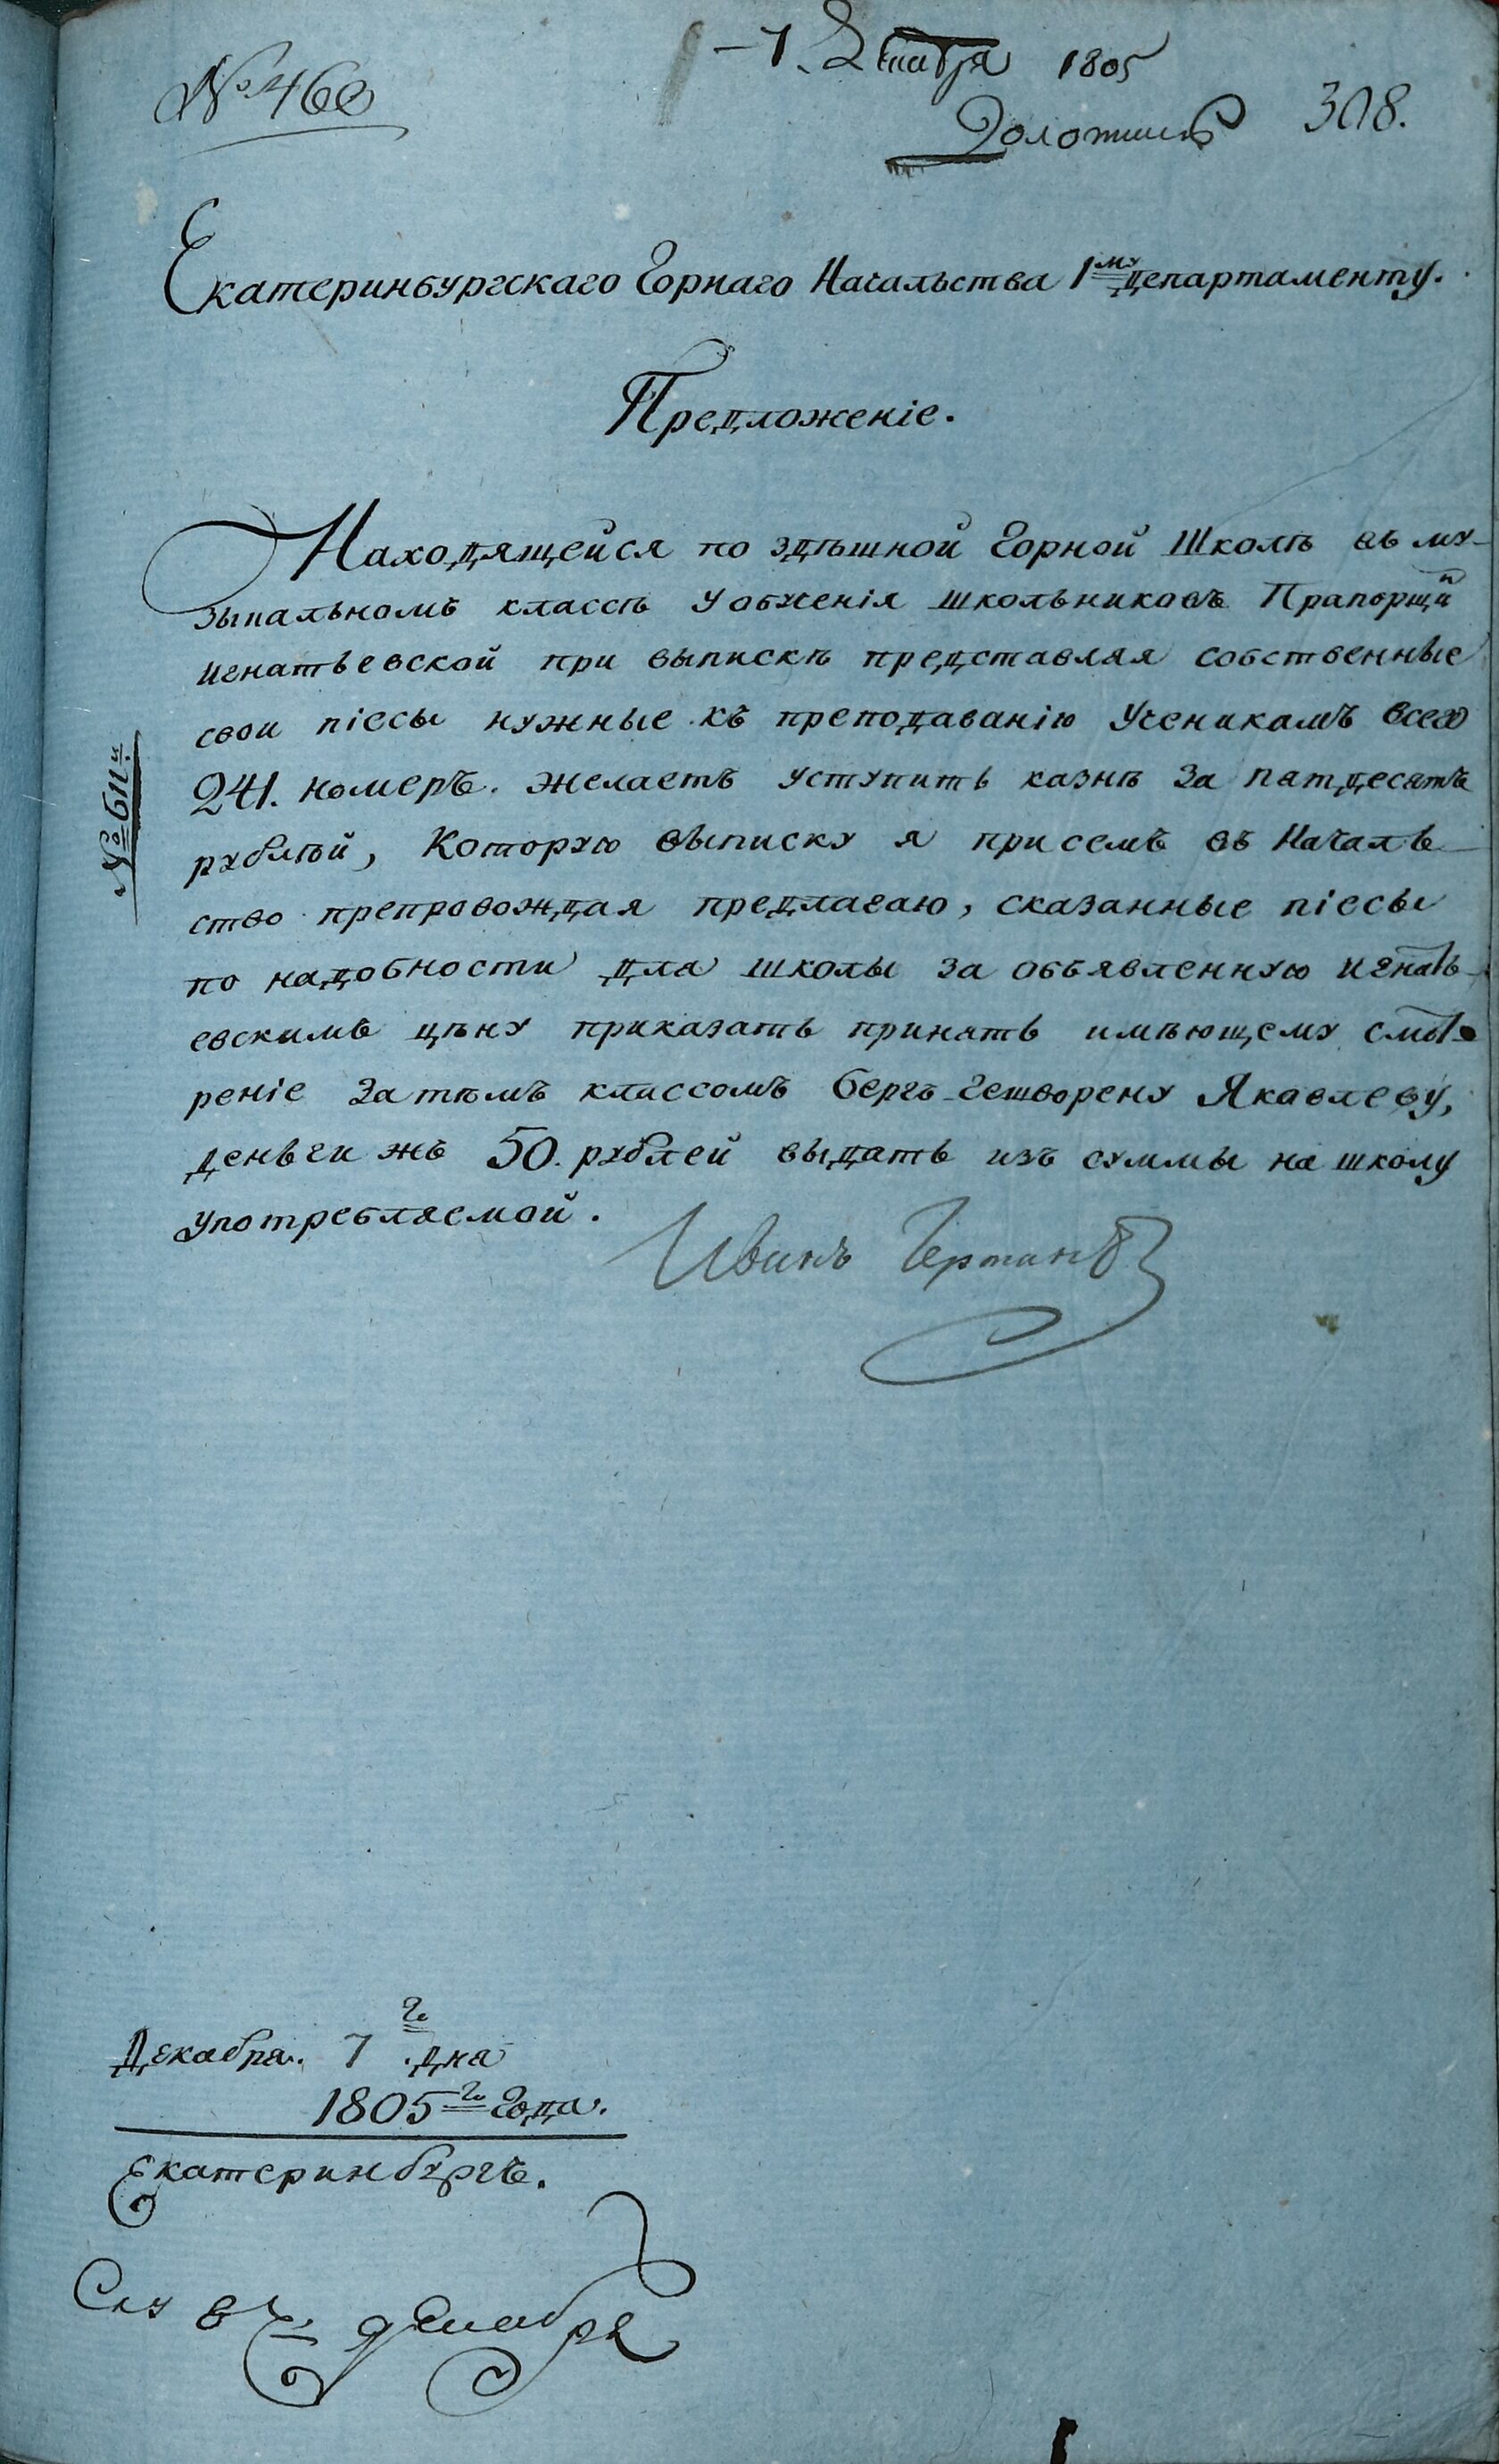 № 460
7. декабря 1805
Доложить 308.
Екатеринбургскаго Горнаго Начальства 1му Департаменту.
Предложеніе.
Находящейся по здѣшной Горной Школѣ въ му-
зыкальномъ классѣ у обученія школьниковъ Прапорщикъ
Игнатьевской при выпискѣ представляя собственные
свои піесы нужные къ преподаванію Ученикамъ всего
241. номеръ. желаетъ уступить казнѣ за пятдесятъ
рублѣй, Которую выписку я присемъ въ Началь-
ство препровождая предлагаю, сказанные піесы
по надобности для школы за объявленную Игнать-
евскимъ цѣну приказать принять имѣющему смот-
реніе за тѣмъ классомъ Бергъ-гешворену Яковлеву,
деньги жъ 50. рублей выдать изъ суммы на школу
употребляемой.
Иванъ Германъ
№ 611й
Декабря. 7го дня
1805го Года.
Екатеринбургъ.
декабря